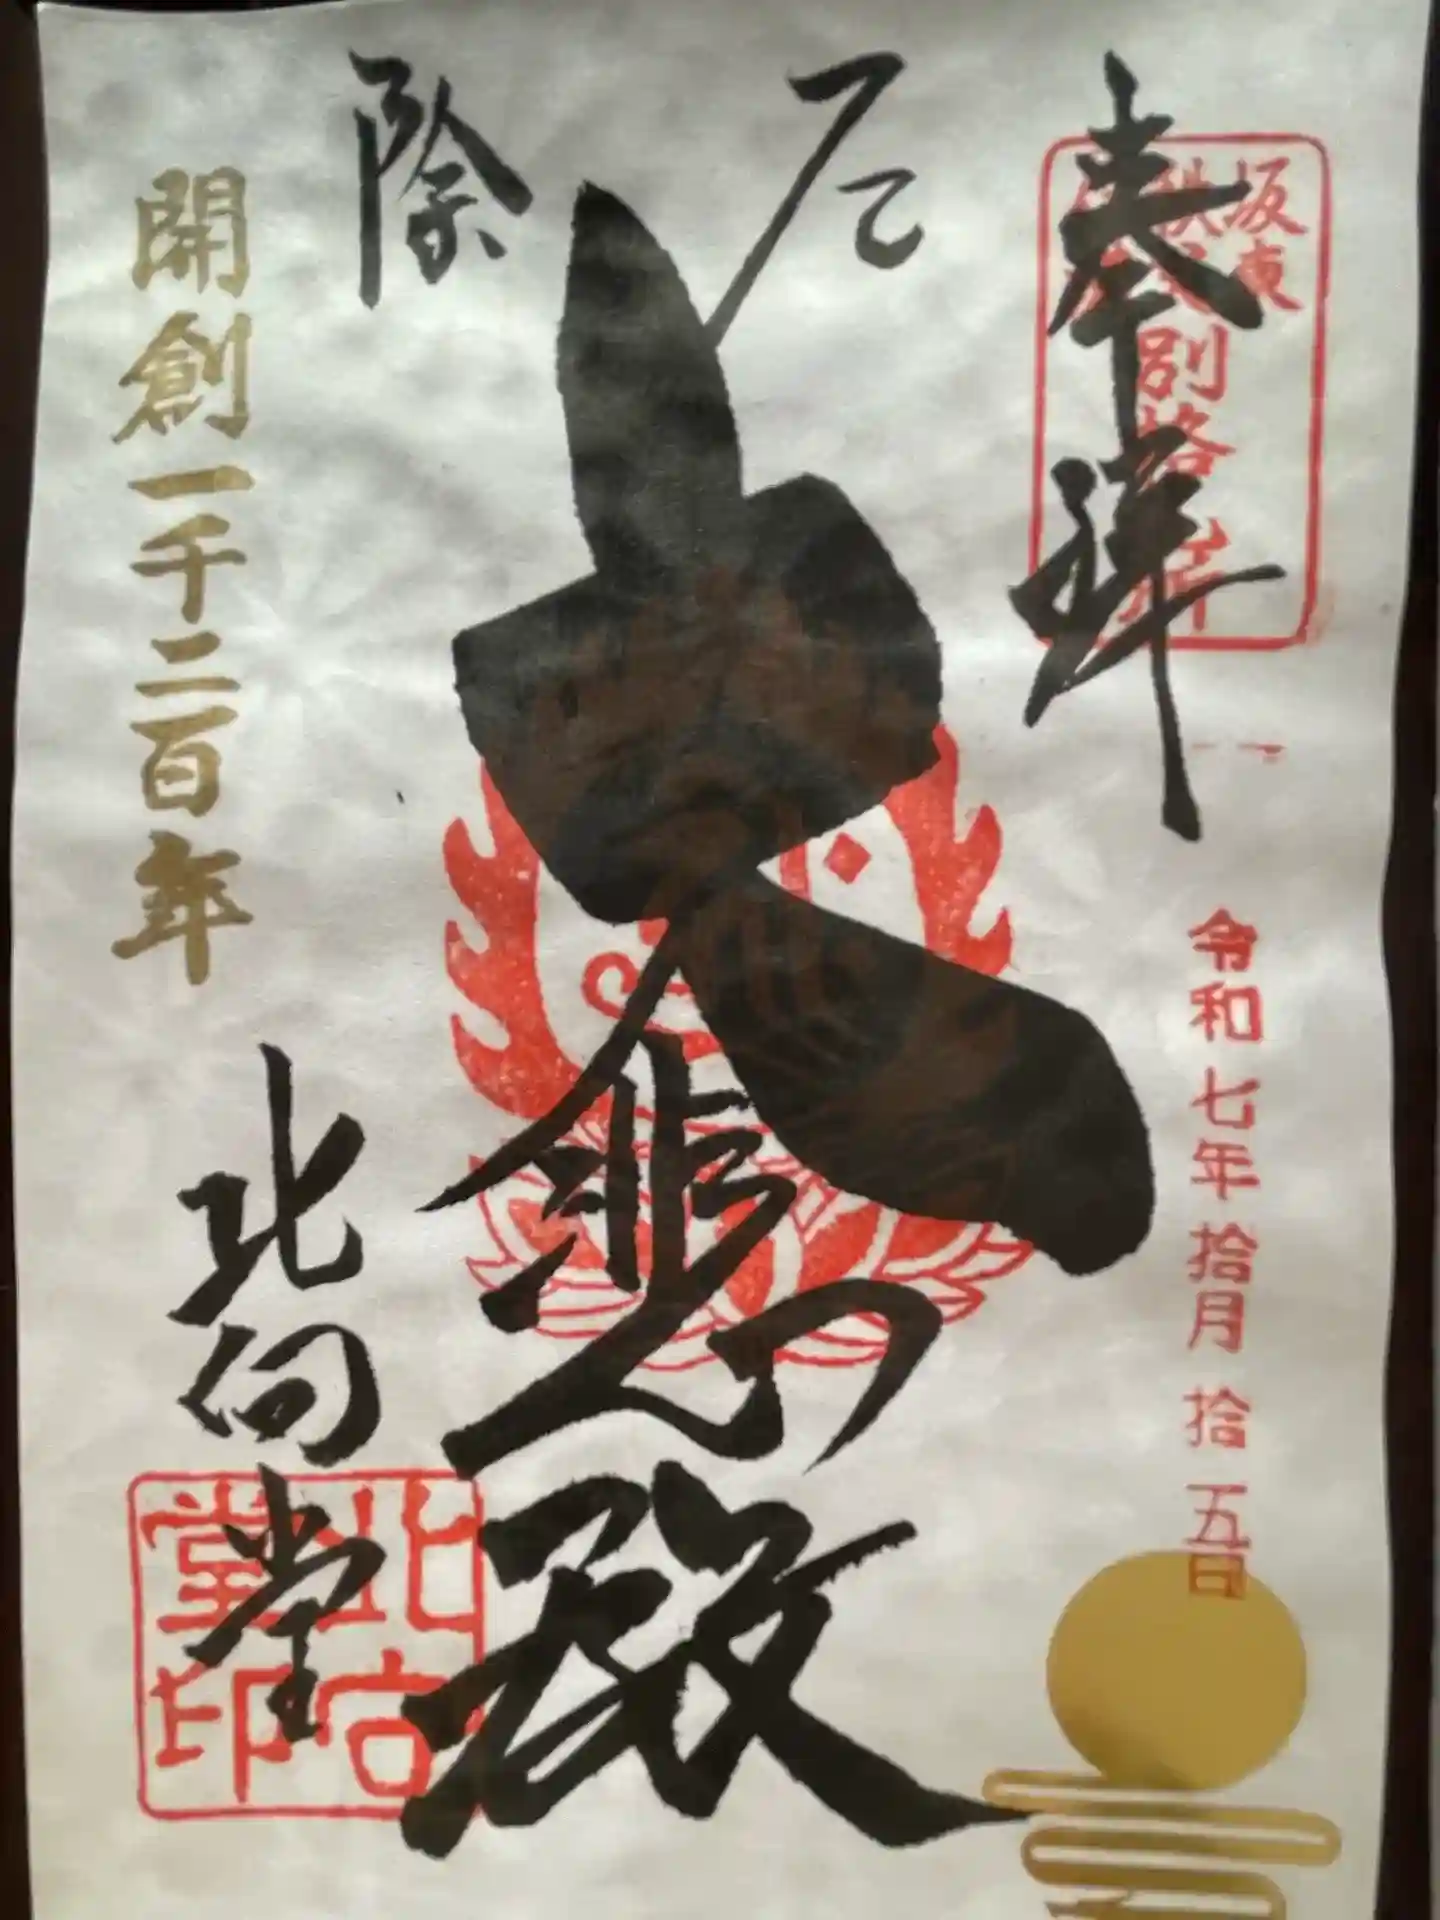 奉拝
坂東
別格
令和七年拾月拾五日
厄除
大悲殿
北向堂
北向堂印
開創一千二百年